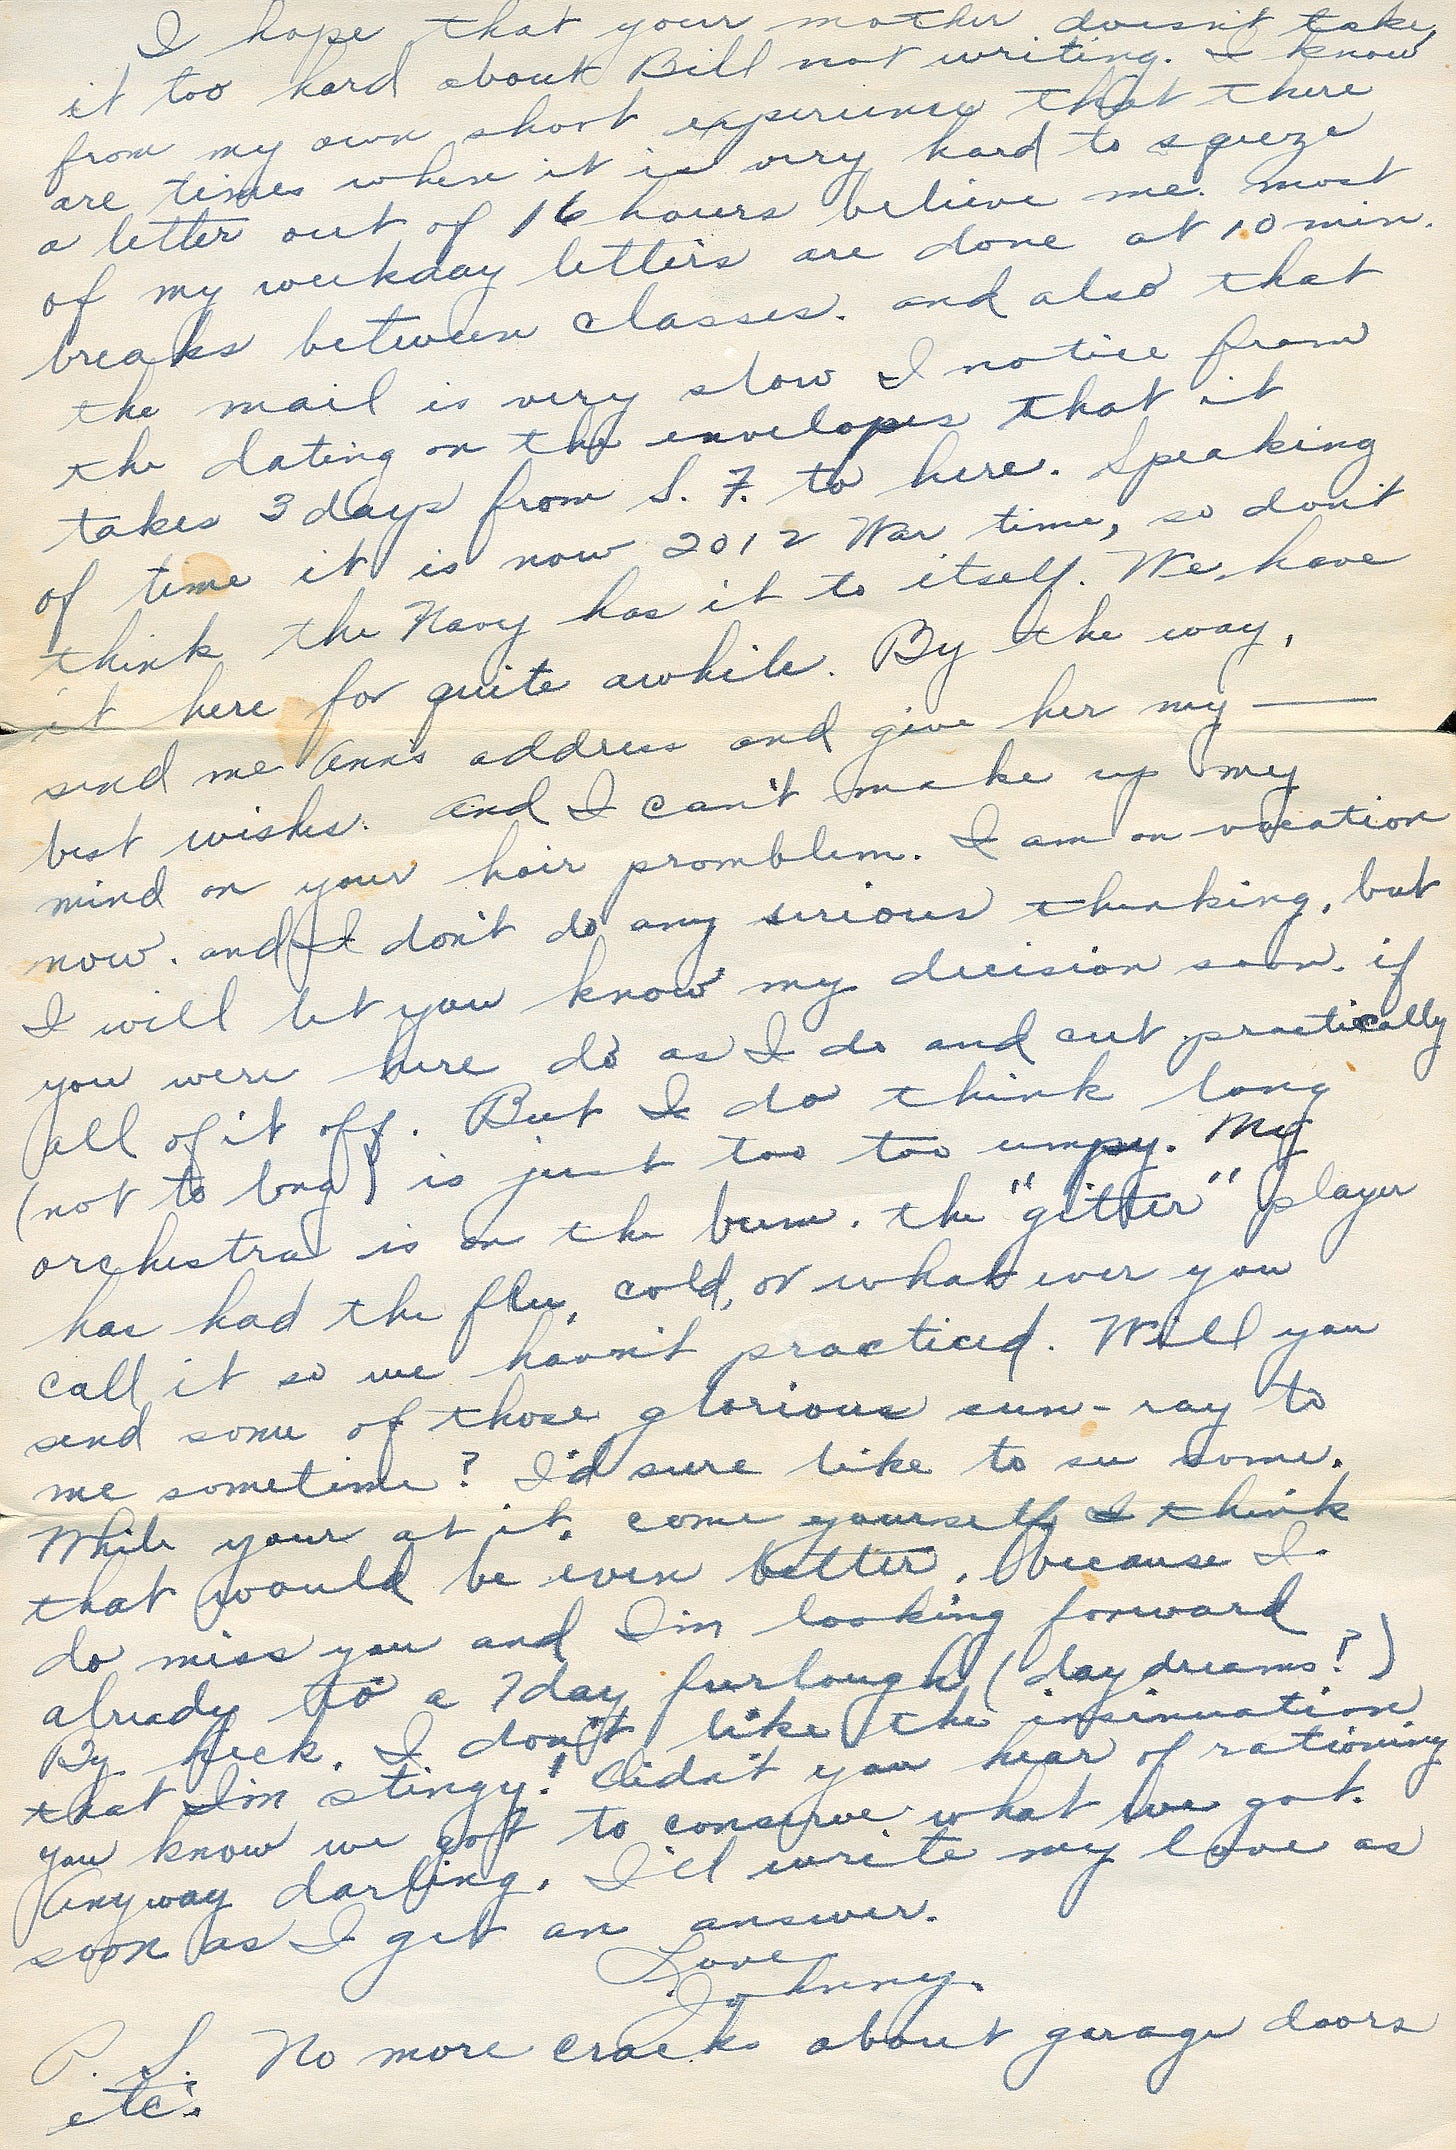 I hope that your mother doesn't take
it too hard about Bill not writing. I know
from my own short experience that there
are times when it is very hard to sqeeze
a letter out of 16 hours believe me. most
of my weekday letters are done at 10 min.
breaks between classes. and also that
the mail is very slow I notice from
the dating on the envelopes that it
takes 3 days from S. F. to here. Speaking
of time it is now 2012 War time, so don't
think the Navy has it to itself. We have
it here for quite awhile. By the way,
send me Ann's address and give her my —
best wishes. And I can't make up my
mind on your hair promblem. I am on vacation
now. and I don't do any serious thinking, but
I will let you know my decision soon. if
you were here do as I do and cut practically
all of it off. But I do think long
(not to long) is just too too umpy. My
orchestra is on the bum. the "gitter" player
has had the flu, cold, or what ever you
call it so we havn't practiced. Will you
send some of those glorious sun-ray to
me sometime? I'd sure like to see some.
While your at it, come yourself I think
that would be even better, because I
do miss you and I'm looking forward
already to a 7 day furlough (day dreams!?)
By heck, I don't like the insinuation
that I'm stingy! Didn't you hear of rationing
you know we got to conserve what we got.
Anyway darling, I'll write my love as
soon as I get an answer.
Love
Johnny.
P. S. No more cracks about garage doors
etc.